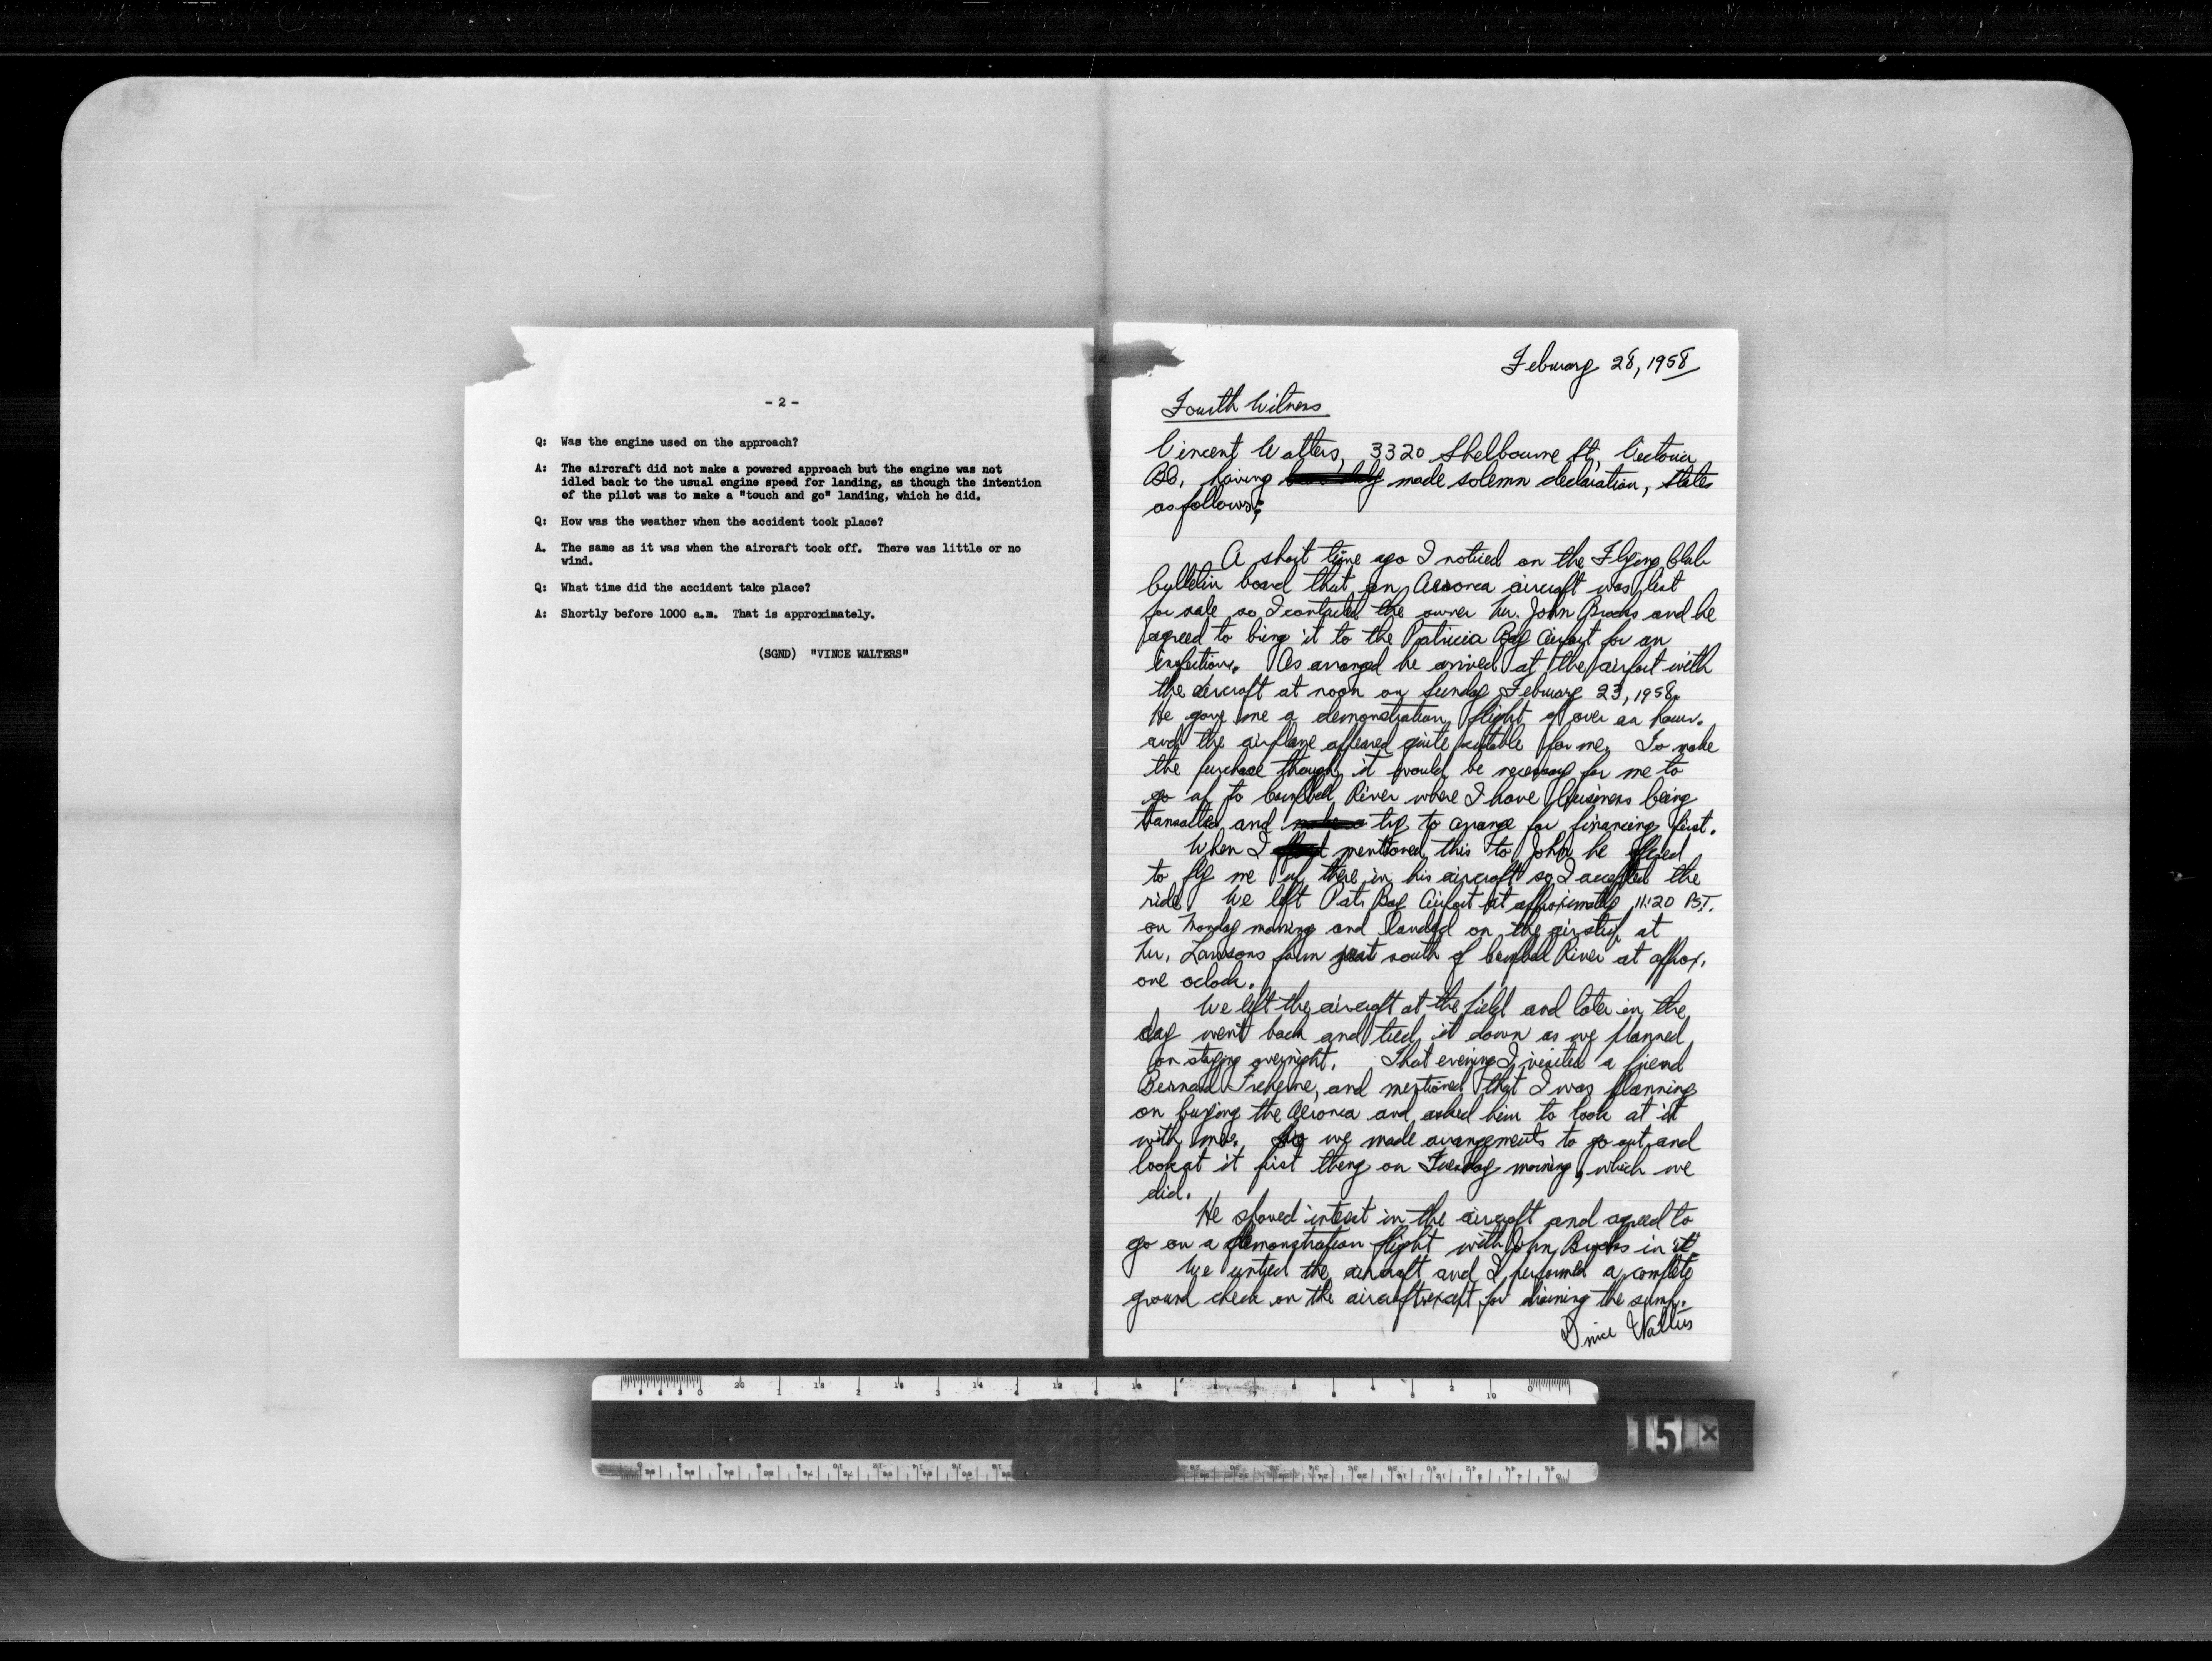 - 2 -
Q: Was the engine used on the approach?
A: The aircraft did not make a powered approach but the engine was not
idled back to the usual engine speed for landing, as though the intention
of the pilot was to make a "touch and go" landing, which he did.
Q: How was the weather when the accident took place?
A. The same as it was when the aircraft took off. There was little or no
wind.
Q: What time did the accident take place?
A: Shortly before 1000 a.m. That is approximately.
(SGND) "VINCE WALTERS"
February 28, 1958
Fourth Witness
Vincent Walters, 3320 Shelbourne St, Victoria
BC, having made solemn declaration, states
as follows;
A short time ago I noticed on the Flying Club
bulletin board that an Aeronca aircraft was list
for sale so I contacted the owner Mr. John Brooks and he
agreed to bring it to the Patricia Bay Airport for an
inspection. As arranged he arrived at the airport with
the aircraft at noon on Sunday February 23, 1958.
He gave me a demonstration flight of over an hour.
and the airplane appeared quite suitable for me. To make
the purchase though it would be necessary for me to
go up to Campbell River where I have business being
transacted and try to arrange for financing first.
When I mentioned this to John he offered
to fly me up there in his aircraft so I accepted the
ride. We left Pats Bay Airport at approximately 11:20 P.S.T.
on Monday morning and landed on the airstrip at
Mr. Lawsons farm just south of Campbell River at approx.
one oclock.
We left the aircraft at the field and later in the
day went back and tied it down as we planned
on staying overnight. That evening I visited a friend
Bernard and mentioned that I was planning
on buying the Aeronca and asked him to look at it
with me. So we made arrangements to go out and
look at it first thing on Tuesday morning, which we
did.
He showed interest in the aircraft and agreed to
go on a demonstration flight with John Brooks in it.
We untied the aircraft and I performed a complete
ground check on the aircraft except for draining the sump.
Vince Walters
15 x